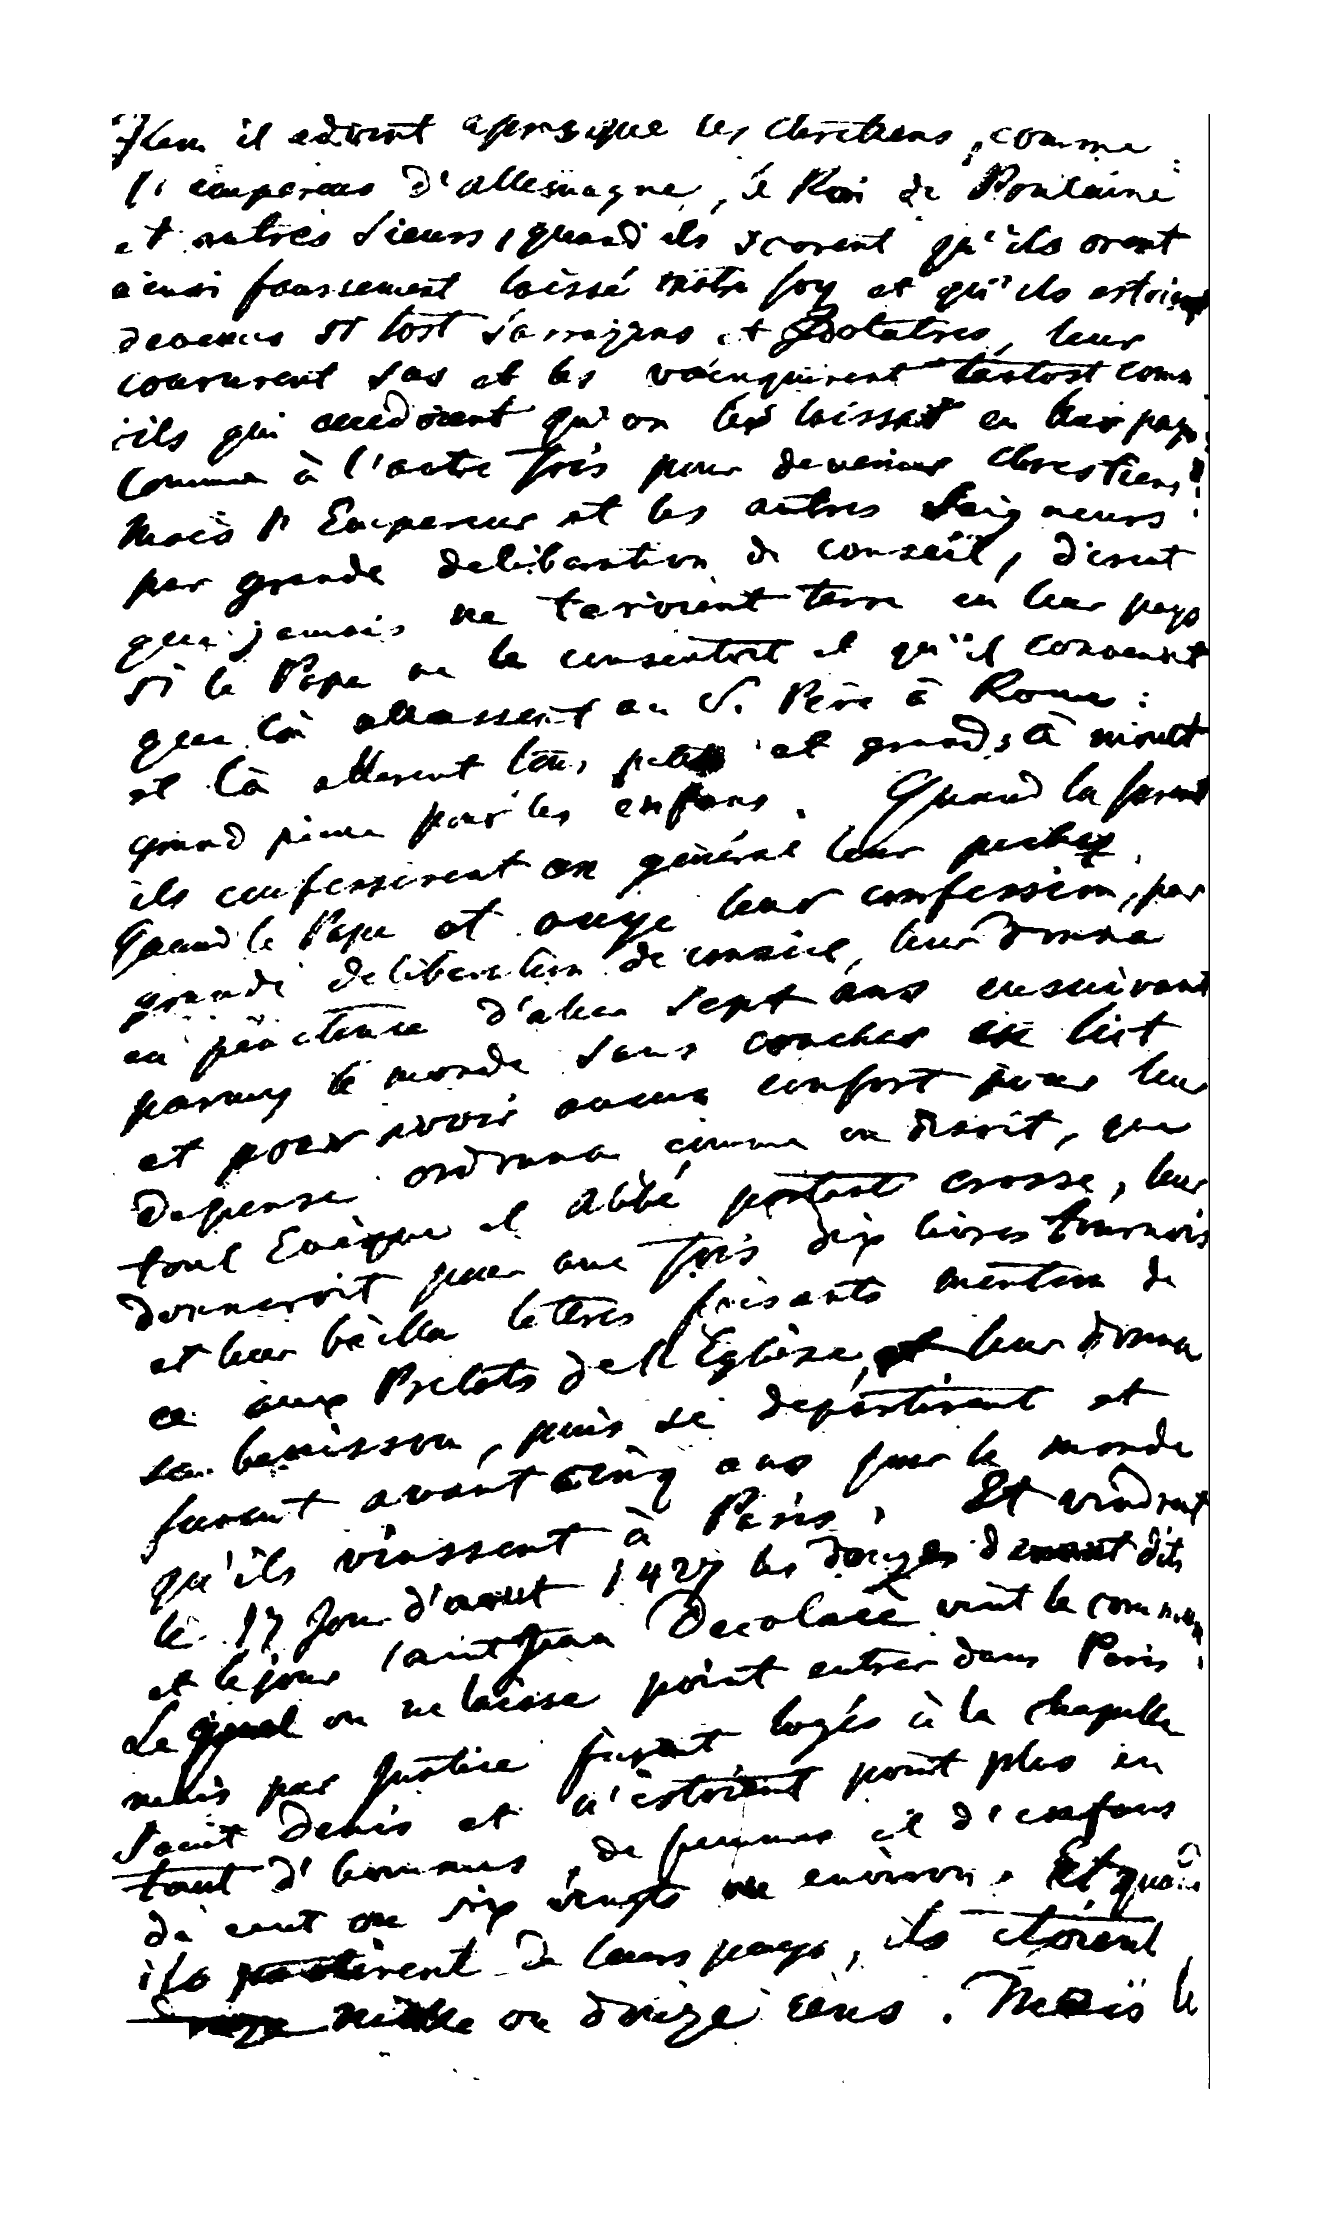 Item il advint après que les chrétiens, comme
l'empereur d'allemagne, le Roi de Poulaine
et autres Sieurs, quand ils scorent qu'ils orent
ainsi faussement laissé notre foy et qu'ils estoient
devenus si tost Sarrazins et Idolatres, leur
coururent sus et les vainquirent tantost comm
cils qui cuidoient qu'on les laissat en leur pays
Comme à l'autre fois pour devenir chrestiens :
Mais l'Empereur et les autres Seigneurs
par grande deliberation de conseil, dirent
que jamais ne tenroient terre en leur pays
si le Pape ne le consentoit et qu'il convenoit
que là allassent au S. Père à Rome :
et là allerent tous, petits et grands, à moult
grand peine pour les enfans. Quand là furent
ils confesserent en général leur pechez.
Quand le Pape ot ouye leur confession, par
grande deliberation de conseil, leur donna
en pénitence d'aler sept ans ensuivant
parmy le monde sans coucher en lict
et pour avoir aucun confort pour leur
depense ordonna comme on disoit, que
tout Evèque et Abbé portant crosse, leur
donneroit pour une fois dix livres tournois
et leur bailla lettres faisants mention de
ce aux Prelats de l'Eglise, et leur donna
sa benisson, puis se départirent et
furent avant cinq ans par le monde
qu'ils vinssent à Paris. Et vindrent
le 17 Jour d'aout 1427 les douzes devant dits
et le jour saint Jean Decolace vint le commun
Lequel on ne laissa point entrer dans Paris
mais par Justice furent logés à la chapelle
Saint Denis et n'estoient point plus en
tout d'hommes, de femmes et d'enfans
de cent ou six vingts ou environ. Et quand
ils partirent de leurs pays, ils étoient
mille ou douze cens. Mais le